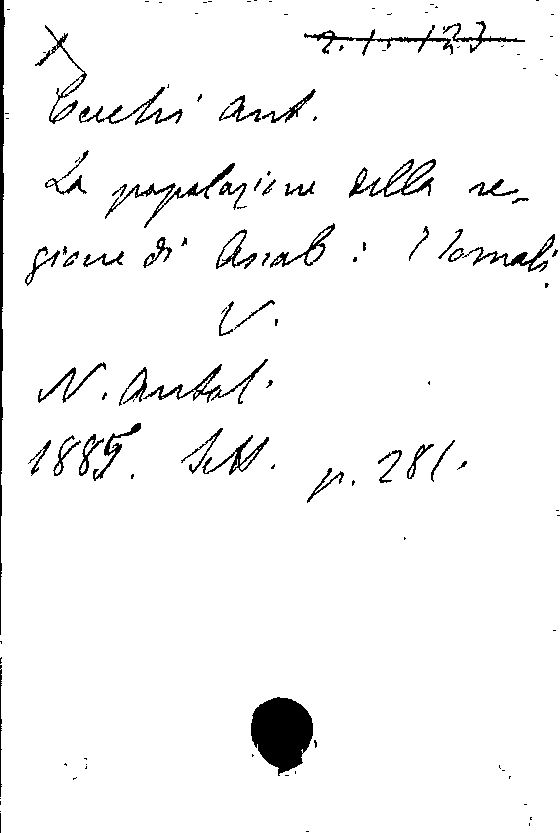 X 2.1.123
Cecchi Ant.
La popolazione della re-
gione di Assab: I Somali.
V.
N. Antol.
1885. Sett. p. 281.